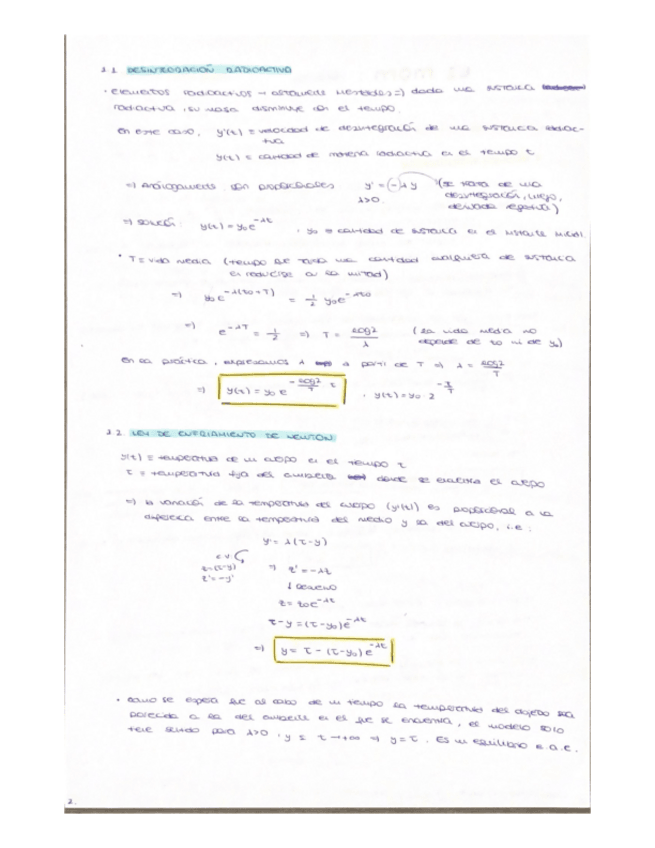 2.1. DESINTEGRACIÓN RADIOACTIVA
· elementos radioactivos → estamente inestables => dada una sustancia
radiactiva, su masa disminuye con el tiempo.
en este caso, y'(t) ≡ velocidad de desintegración de una sustancia radiac-
tiva
y(t) ≡ cantidad de materia radiactiva en el tiempo t
=> análogamente son proporcionales y' = (-)λy (se trata de una
λ>0. desintegración, luego,
derivada negativa)
=> solución: y(t) = y₀e^{-λt} , y₀ ≡ cantidad de sustancia en el instante inicial.
· T ≡ vida media (tiempo que tarda una cantidad cualquiera de sustancia
en reducirse a la mitad)
=> y₀e^{-λ(t₀+T)} = 1/2 y₀e^{-λt₀}
=> e^{-λT} = 1/2 => T = log2/λ (la vida media no
depende de t₀ ni de y₀)
en la práctica, expresamos λ a partir de T => λ = log2/T
=> y(t) = y₀ e^{-log2/T t} , y(t) = y₀ 2^{-t/T}
2.2. LEY DE ENFRIAMIENTO DE NEWTON
y(t) ≡ temperatura de un cuerpo en el tiempo t
τ ≡ temperatura fija del ambiente donde se encuentra el cuerpo
=> la variación de la temperatura del cuerpo (y'(t)) es proporcional a la
diferencia entre la temperatura del medio y la del cuerpo, i.e:
y' = λ(τ-y)
c.v.
z=(τ-y) => z' = -λz
z'=-y'
↓
z = z₀e^{-λt}
τ-y = (τ-y₀)e^{-λt}
=> y = τ - (τ-y₀)e^{-λt}
· como se espera que al cabo de un tiempo la temperatura del objeto sea
parecida a la del ambiente en el que se encuentra, el modelo solo
tiene sentido para λ>0, y si t→+∞ => y=τ. Es un equilibrio e.a.e.
2.